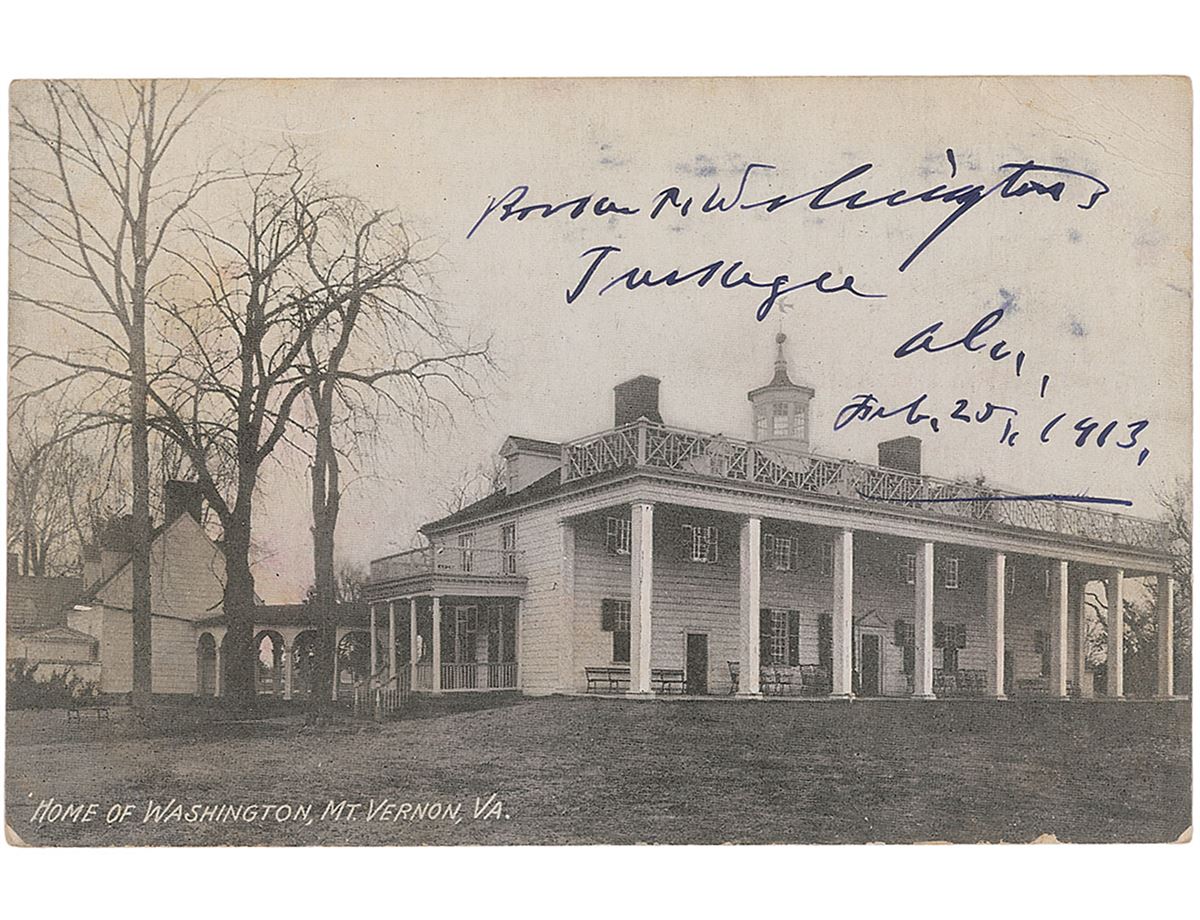 Booker T. Washington
Tuskegee
Ala.,
Feb. 25, 1913,
HOME OF WASHINGTON, MT. VERNON, VA.